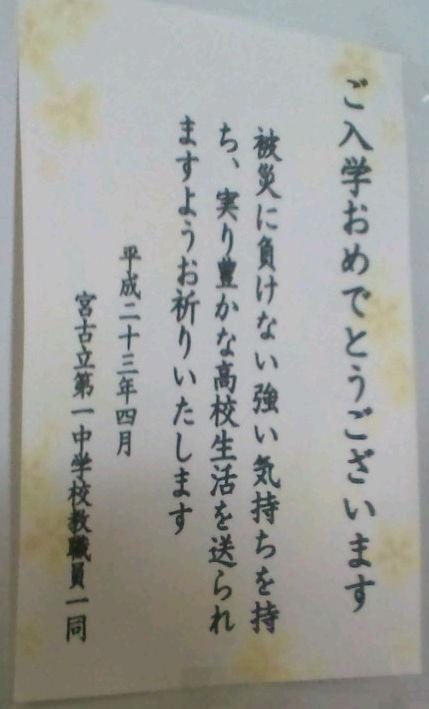 ご入学おめでとうございます
被災に負けない強い気持ちを持
ち、実り豊かな高校生活を送られ
ますようお祈りいたします
平成二十三年四月
宮古立第一中学校教職員一同